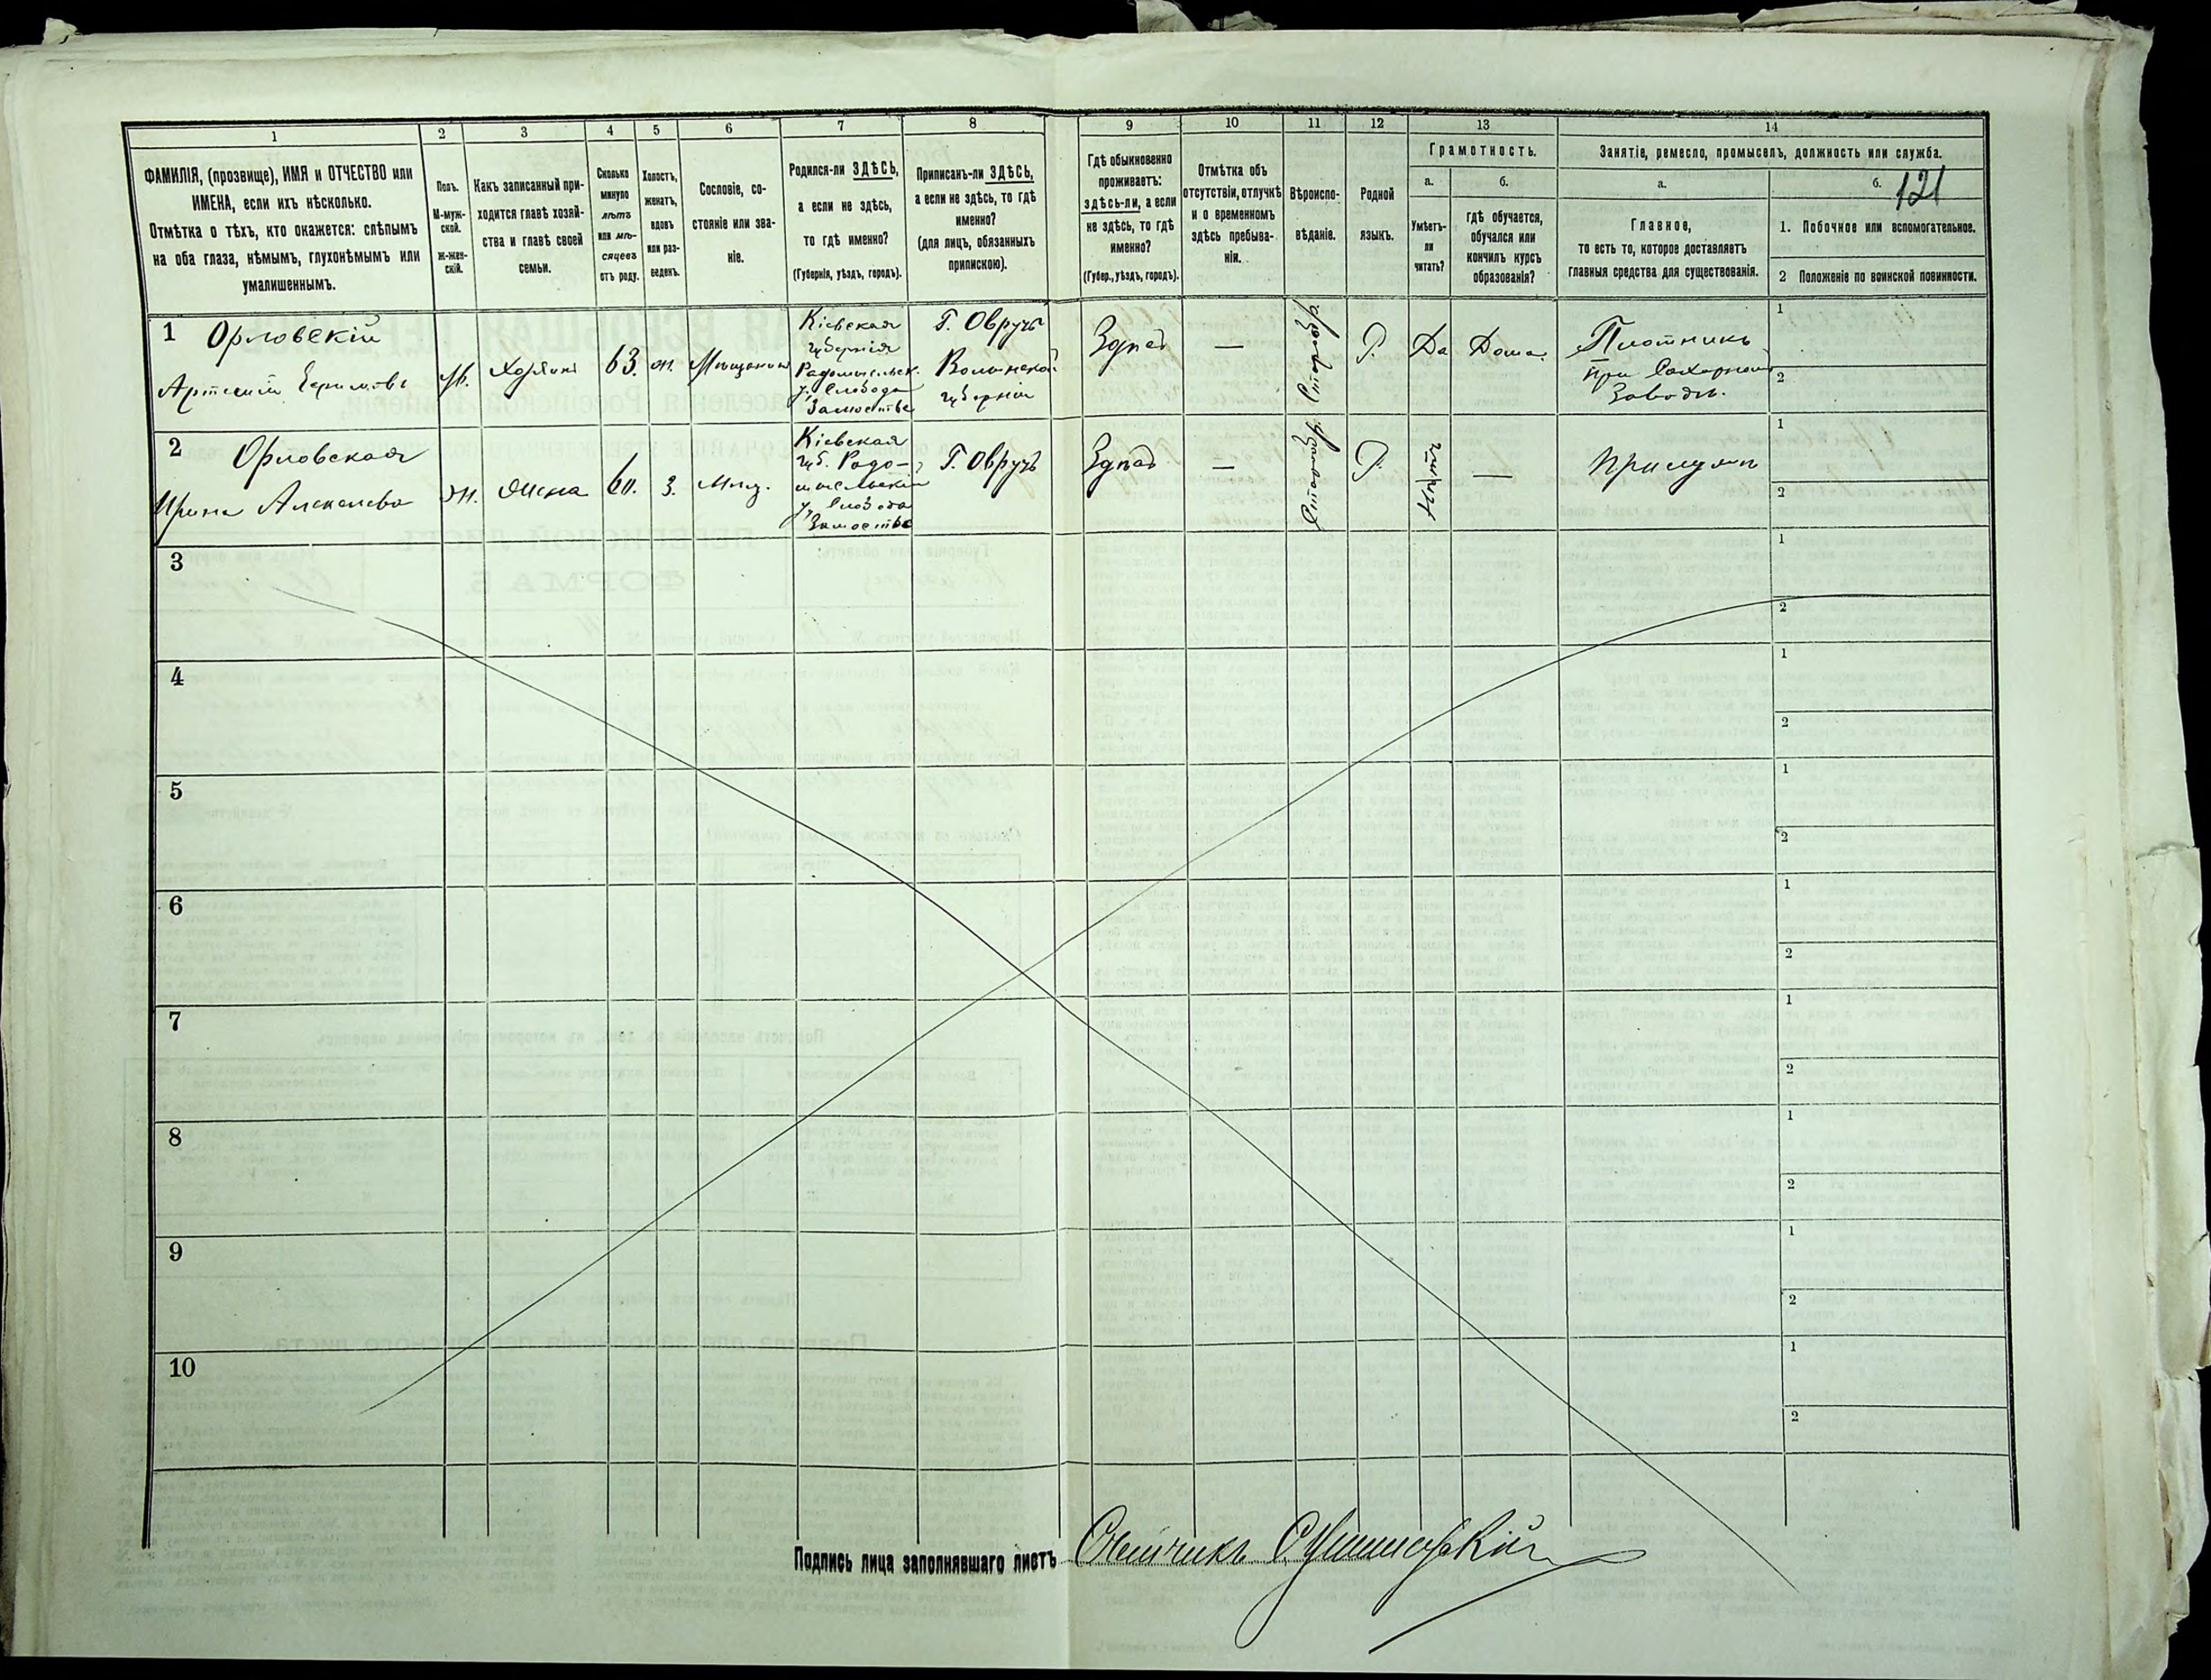 1 2 3 4 5 6 7 8 9 10 11 12 13 14
ФАМИЛІЯ, (прозвище), ИМЯ и ОТЧЕСТВО или
ИМЕНА, если ихъ нѣсколько.
Отмѣтка о тѣхъ, кто окажется: слѣпымъ
на оба глаза, нѣмымъ, глухонѣмымъ или
умалишеннымъ.
Полъ.
М-муж-
ской.
Ж-жен-
скій.
Какъ записанный при-
ходится главѣ хозяй-
ства и главѣ своей
семьи.
Сколько
минуло
лѣтъ
или мѣ-
сяцевъ
отъ роду.
Холостъ,
женатъ,
вдовъ
или раз-
веденъ.
Сословіе, со-
стояніе или зва-
ніе.
Родился-ли ЗДѢСЬ,
а если не здѣсь,
то гдѣ именно?
(Губернія, уѣздъ, городъ).
Приписанъ-ли ЗДѢСЬ,
а если не здѣсь, то гдѣ
именно?
(для лицъ, обязанныхъ
припискою).
Гдѣ обыкновенно
проживаетъ:
здѣсь-ли, а если
не здѣсь, то гдѣ
именно?
(Губер., уѣздъ, городъ).
Отмѣтка объ
отсутствіи, отлучкѣ
и о временномъ
здѣсь пребыва-
ніи.
Вѣроиспо-
вѣданіе.
Родной
языкъ.
Грамотность.
а.
Умѣетъ-
ли
читать?
б.
гдѣ обучается,
обучался или
кончилъ курсъ
образованія?
Занятіе, ремесло, промыселъ, должность или служба.
а.
Главное,
то есть то, которое доставляетъ
главныя средства для существованія.
б.
121
1. Побочное или вспомогательное.
2 Положеніе по воинской повинности.
1 Орловскій
Артемій
М.
Хозяинъ
63.
ж.
Мѣщанинъ
Кіевская
губернія
Радомысльск.
у. Слобода
Замостье
Г. Овручъ
Волынской
губерніи
Здѣсь
—
Старообр.
Р.
Да
Дома.
Плотникъ
при Сахарномъ
Заводѣ.
1
2
2 Орловская
Ирина
Ж.
Жена
60.
З.
Мѣщ.
Кіевская
губ. Радо-
мысльскій
у. Слобода
Замостье
Г. Овручъ
Здѣсь
—
Старообр.
Р.
Нѣтъ
—
При мужѣ
1
2
3
1
2
4
1
2
5
1
2
6
1
2
7
1
2
8
1
2
9
1
2
10
1
2
Подпись лица заполнявшаго листъ Счетчикъ